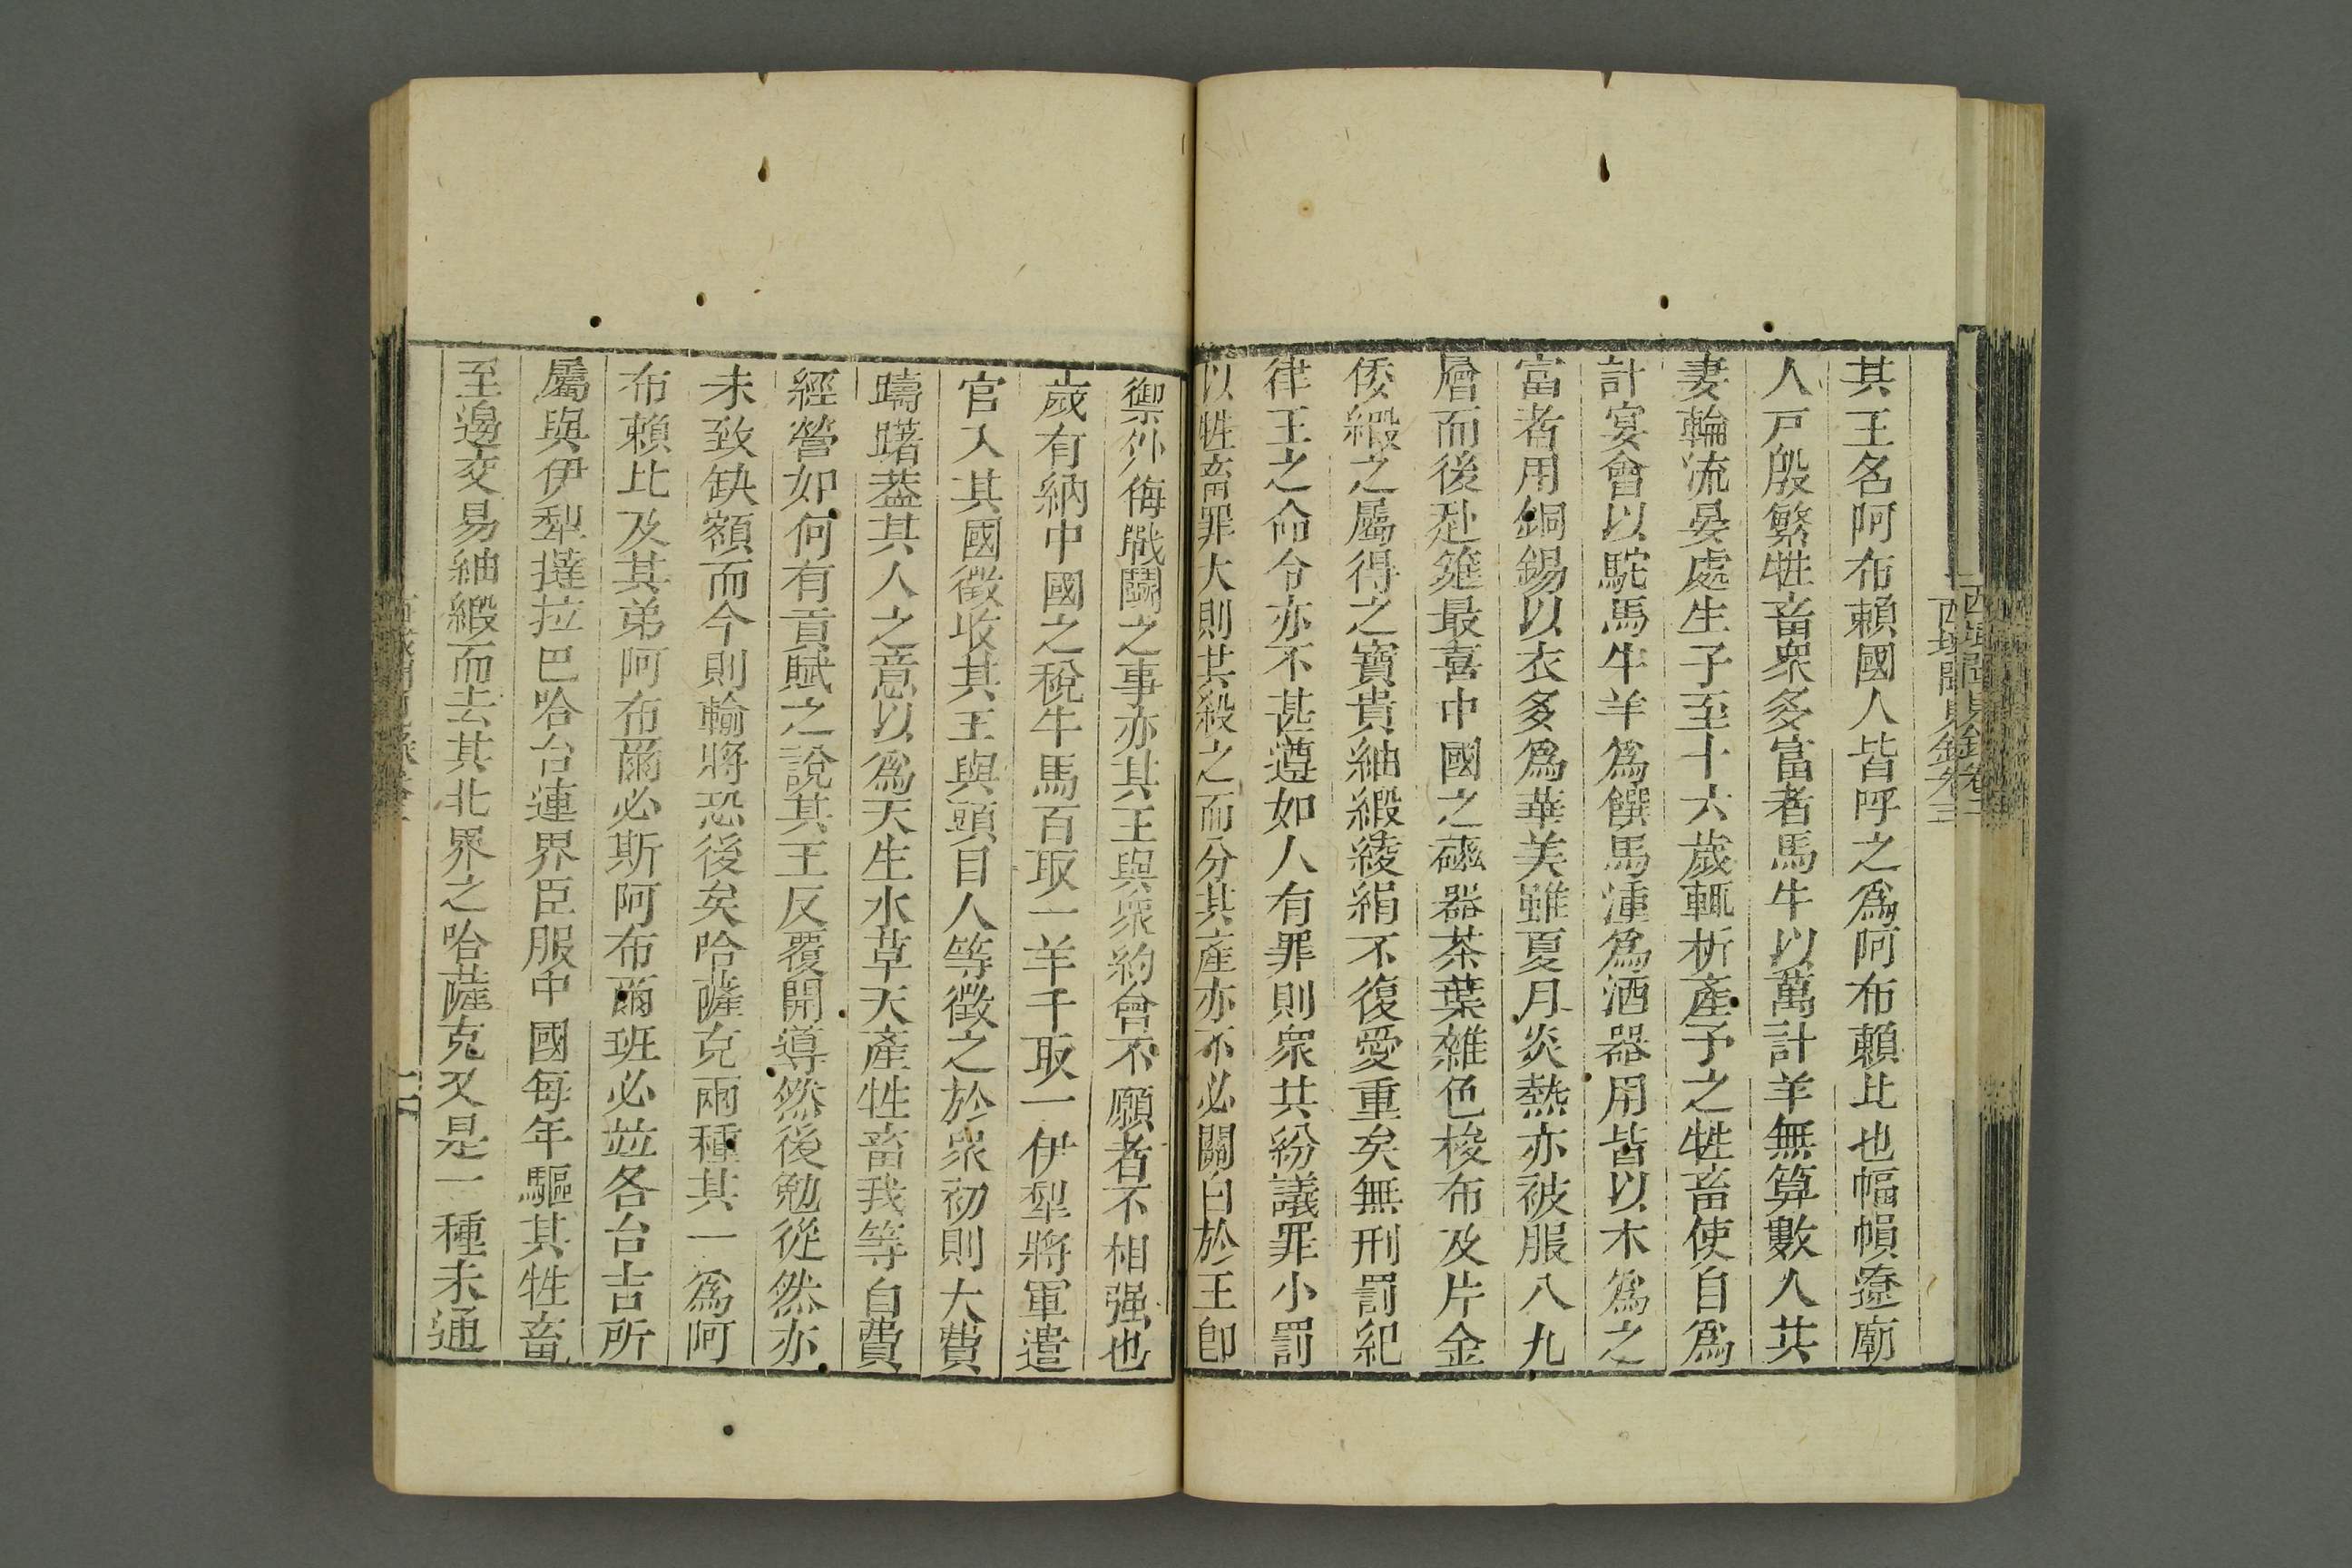 西域聞見錄卷三
其王名阿布賴國人皆呼之爲阿布賴比也幅幀遼廟
人戸殷繁牲畜衆多富者馬牛以萬計羊無算數人共
妻輪流晏處生子至十六歲輒析產予之牲畜使自爲
計宴會以駝馬牛羊爲饌馬湩爲酒器用皆以木爲之
富者用銅錫以衣多爲華美雖夏月炎熱亦被服八九
層而後赴筵最喜中國之磁器茶葉雜色梭布及片金
倭緞之屬得之寶貴紬緞綾絹不復愛重矣無刑罰紀
律王之命令亦不甚遵如人有罪則衆共紛議罪小罰
以牲畜罪大則共殺之而分其產亦不必關白於王卽
禦外侮戰鬭之事亦其王與衆約會不願者不相强也
歲有納中國之稅牛馬百取一羊千取一伊犁將軍遣
官入其國徵收其王與頭目人等徵之於衆初則大費
躊躇葢其人之意以爲天生水草天產牲畜我等自費
經營如何有貢賦之說其王反覆開導然後勉從然亦
未致缺額而今則輸將恐後矣哈薩克兩種其一爲阿
布賴比及其弟阿布爾必斯阿布爾班必竝各台吉所
屬與伊犁撻拉巴哈台連界臣服中國每年驅其牲畜
至邊交易紬緞而去其北界之哈薩克又是一種未通